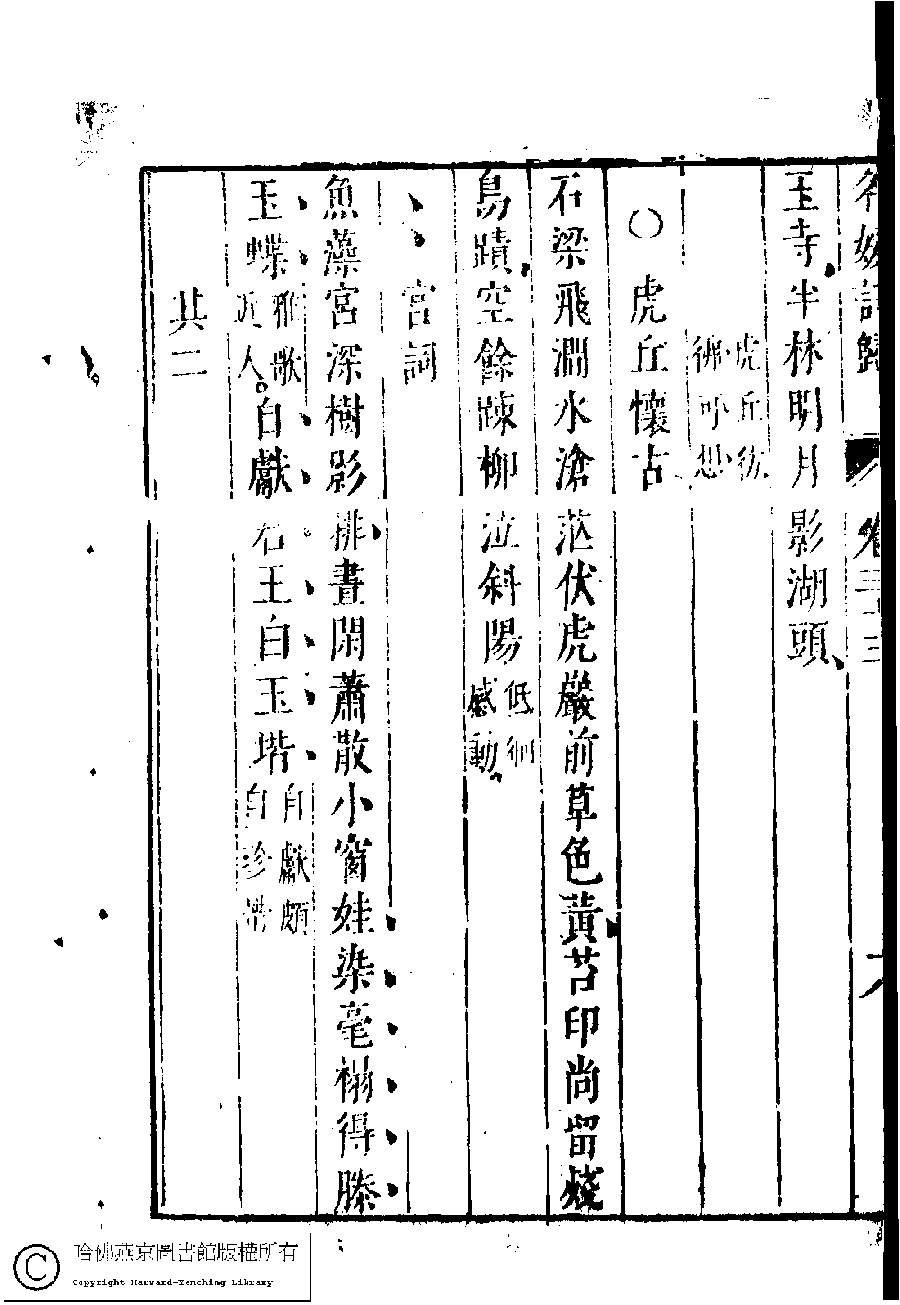 名媛詩歸 卷三十三 六
玉寺半林明月影湖頭
虎丘彷彿可想
○虎丘懷古
石梁飛澗水滄茫伏虎巖前草色黃苔印尚留殘
鳥蹟空餘踈柳泣斜陽低徊感動
宮詞
魚藻宮深樹影排晝閑蕭散小窗娃染毫搨得滕
王蝶雅歌近人自獻君王白玉堦自獻頗自珍
其二
哈佛燕京圖書館版權所有
Copyright Harvard-Yenching Library